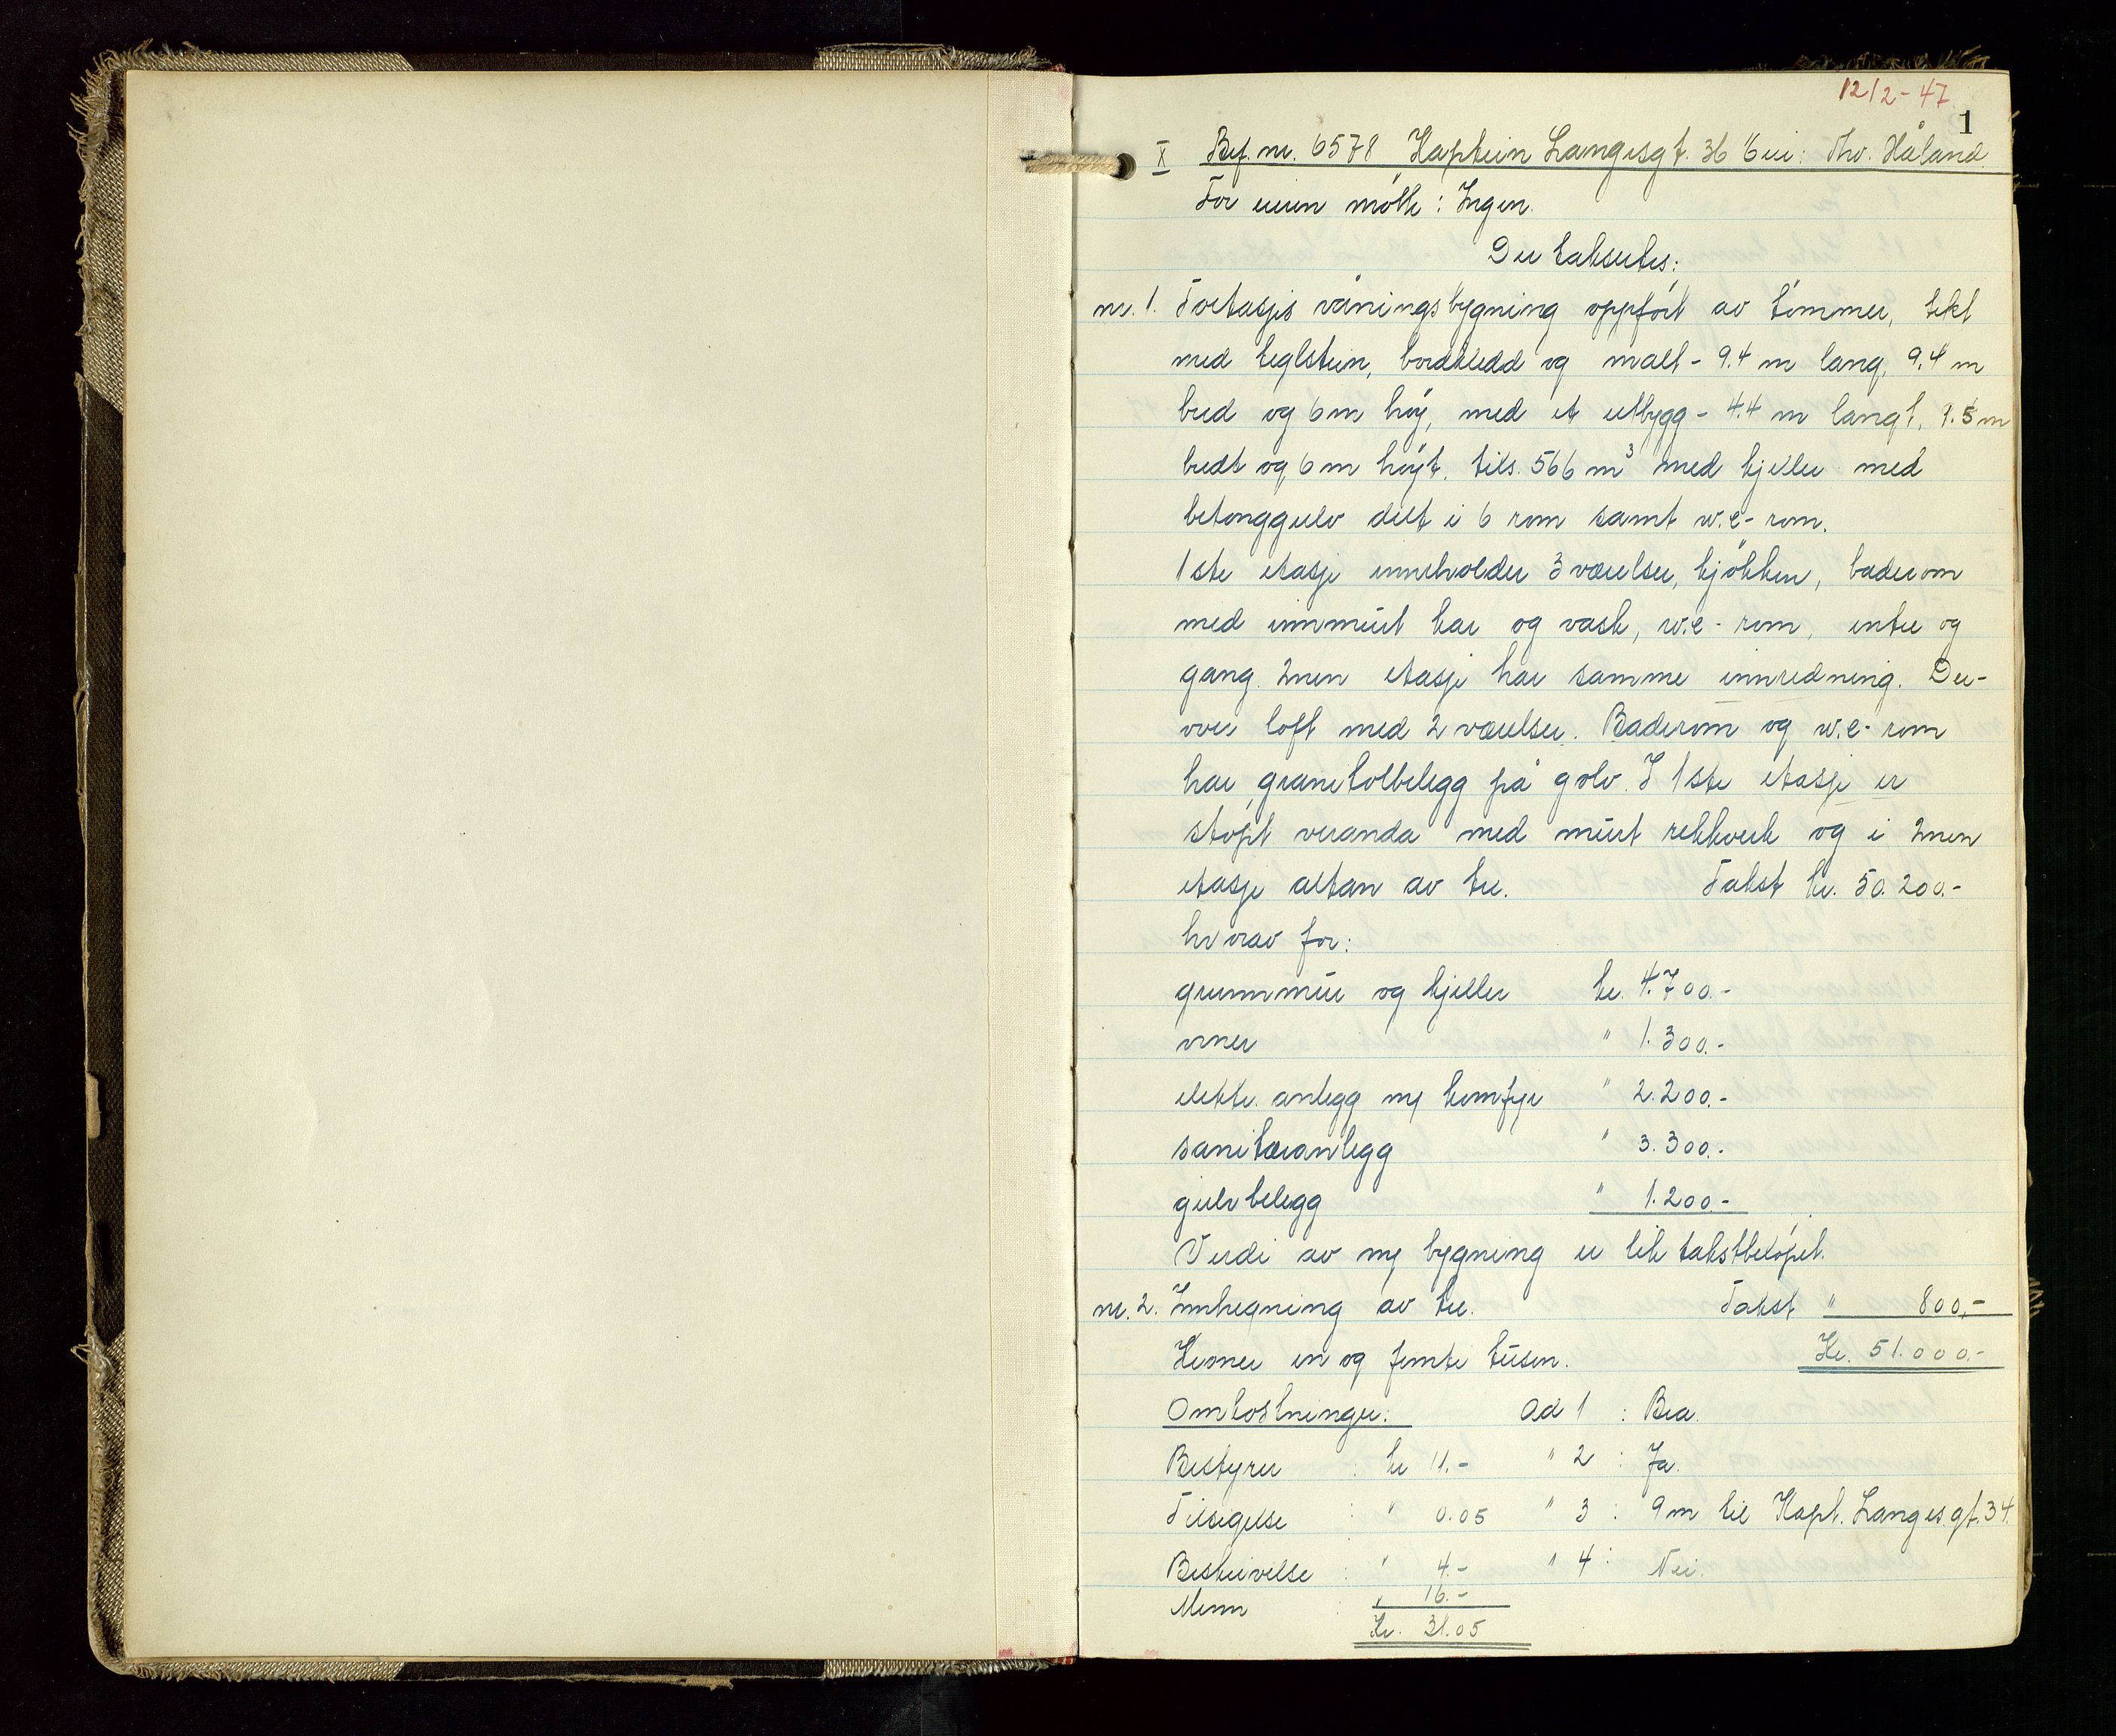 12/2-47
1
X Br.f. nr. 6578 Kaptein Langesgt. 36 Eier: Thv. Håland.
For eieren møtte: Ingen.
Der takseretes:
nr. 1. Toetasjes våningsbygning oppført av tømmer, tekt
med teglstein, bordkledd og malt - 9.4 m lang, 9.4 m
bred og 6 m høy, med et utbygg - 4.4 m langt, 1.5 m
bredt og 6 m høyt, tils. 566 m³ med kjeller med
betonggulv delt i 6 rom samt w.c-rom.
1ste etasje inneholder 3 værelser, kjøkken, baderom
med innmurt kar og vask, w.c-rom, entre og
gang. 2nen etasje har samme innredning. Der-
over loft med 2 værelser. Baderom og w.c-rom
har granitolbelegg på golv. I 1ste etasje er
støpt veranda med murt rekkverk og i 2nen
etasje altan av tre. Takst kr. 50.200.-
hvorav for:
grunnmur og kjeller kr. 4.700.-
ovner " 1.300.-
elektr. anlegg m/ komfyr " 2.200.-
sanitæranlegg " 3.300.-
gulvbelegg " 1.200.-
Verdi av ny bygning er lik takstbeløpet.
nr. 2. Innhegning av tre. Takst " 800,-
Kroner en og femti tusen. Kr. 51.000.-
Omkostninger: Ad 1 : Bra.
Bestyrer : kr 11.- " 2 : Ja.
Tilsigelse : " 0.05 " 3 : 9 m til Kapt. Langesgt. 34.
Beskrivelse : " 4.- " 4 : Nei.
Menn : " 16.-
Kr. 31.05